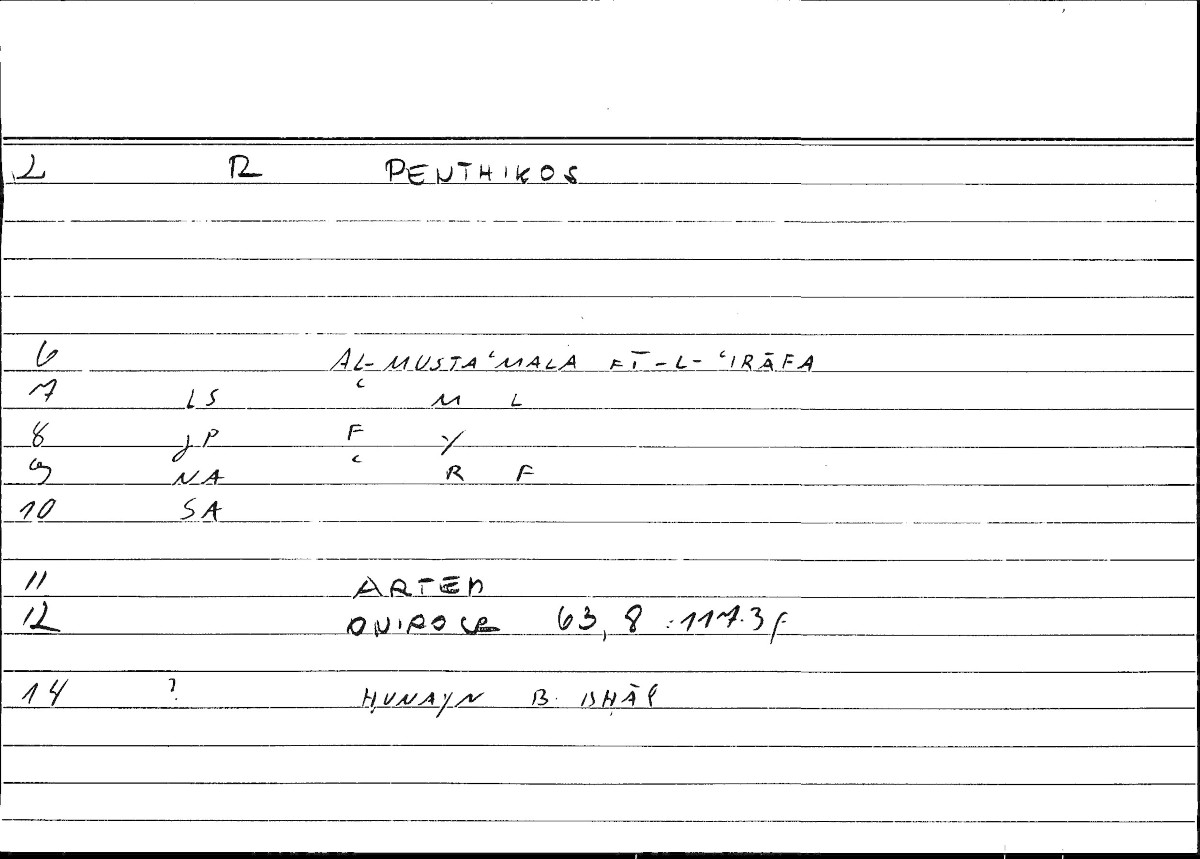 2 R PENTHIKOS
6 AL-MUSTAʿMALA FĪ-L-ʿIRĀFA
7 LS ʿ M L
8 JP F Y
9 NA ʿ R F
10 SA
11 ARTEM
12 ONIROCR 63, 8 : 117.3 f
14 ? ḤUNAYN B. ISḤĀQ